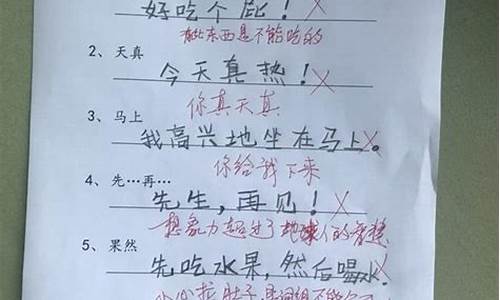 好吃个屁！
有些东西是不能吃的
2、天真
今天真热！
你真天真
3、马上
我高兴地坐在马上。
你给我下来
4、先…再…
先生，再见！
想象力超过了地球人的智慧
5、果然
先吃水果，然后喝水。
小心拉肚子